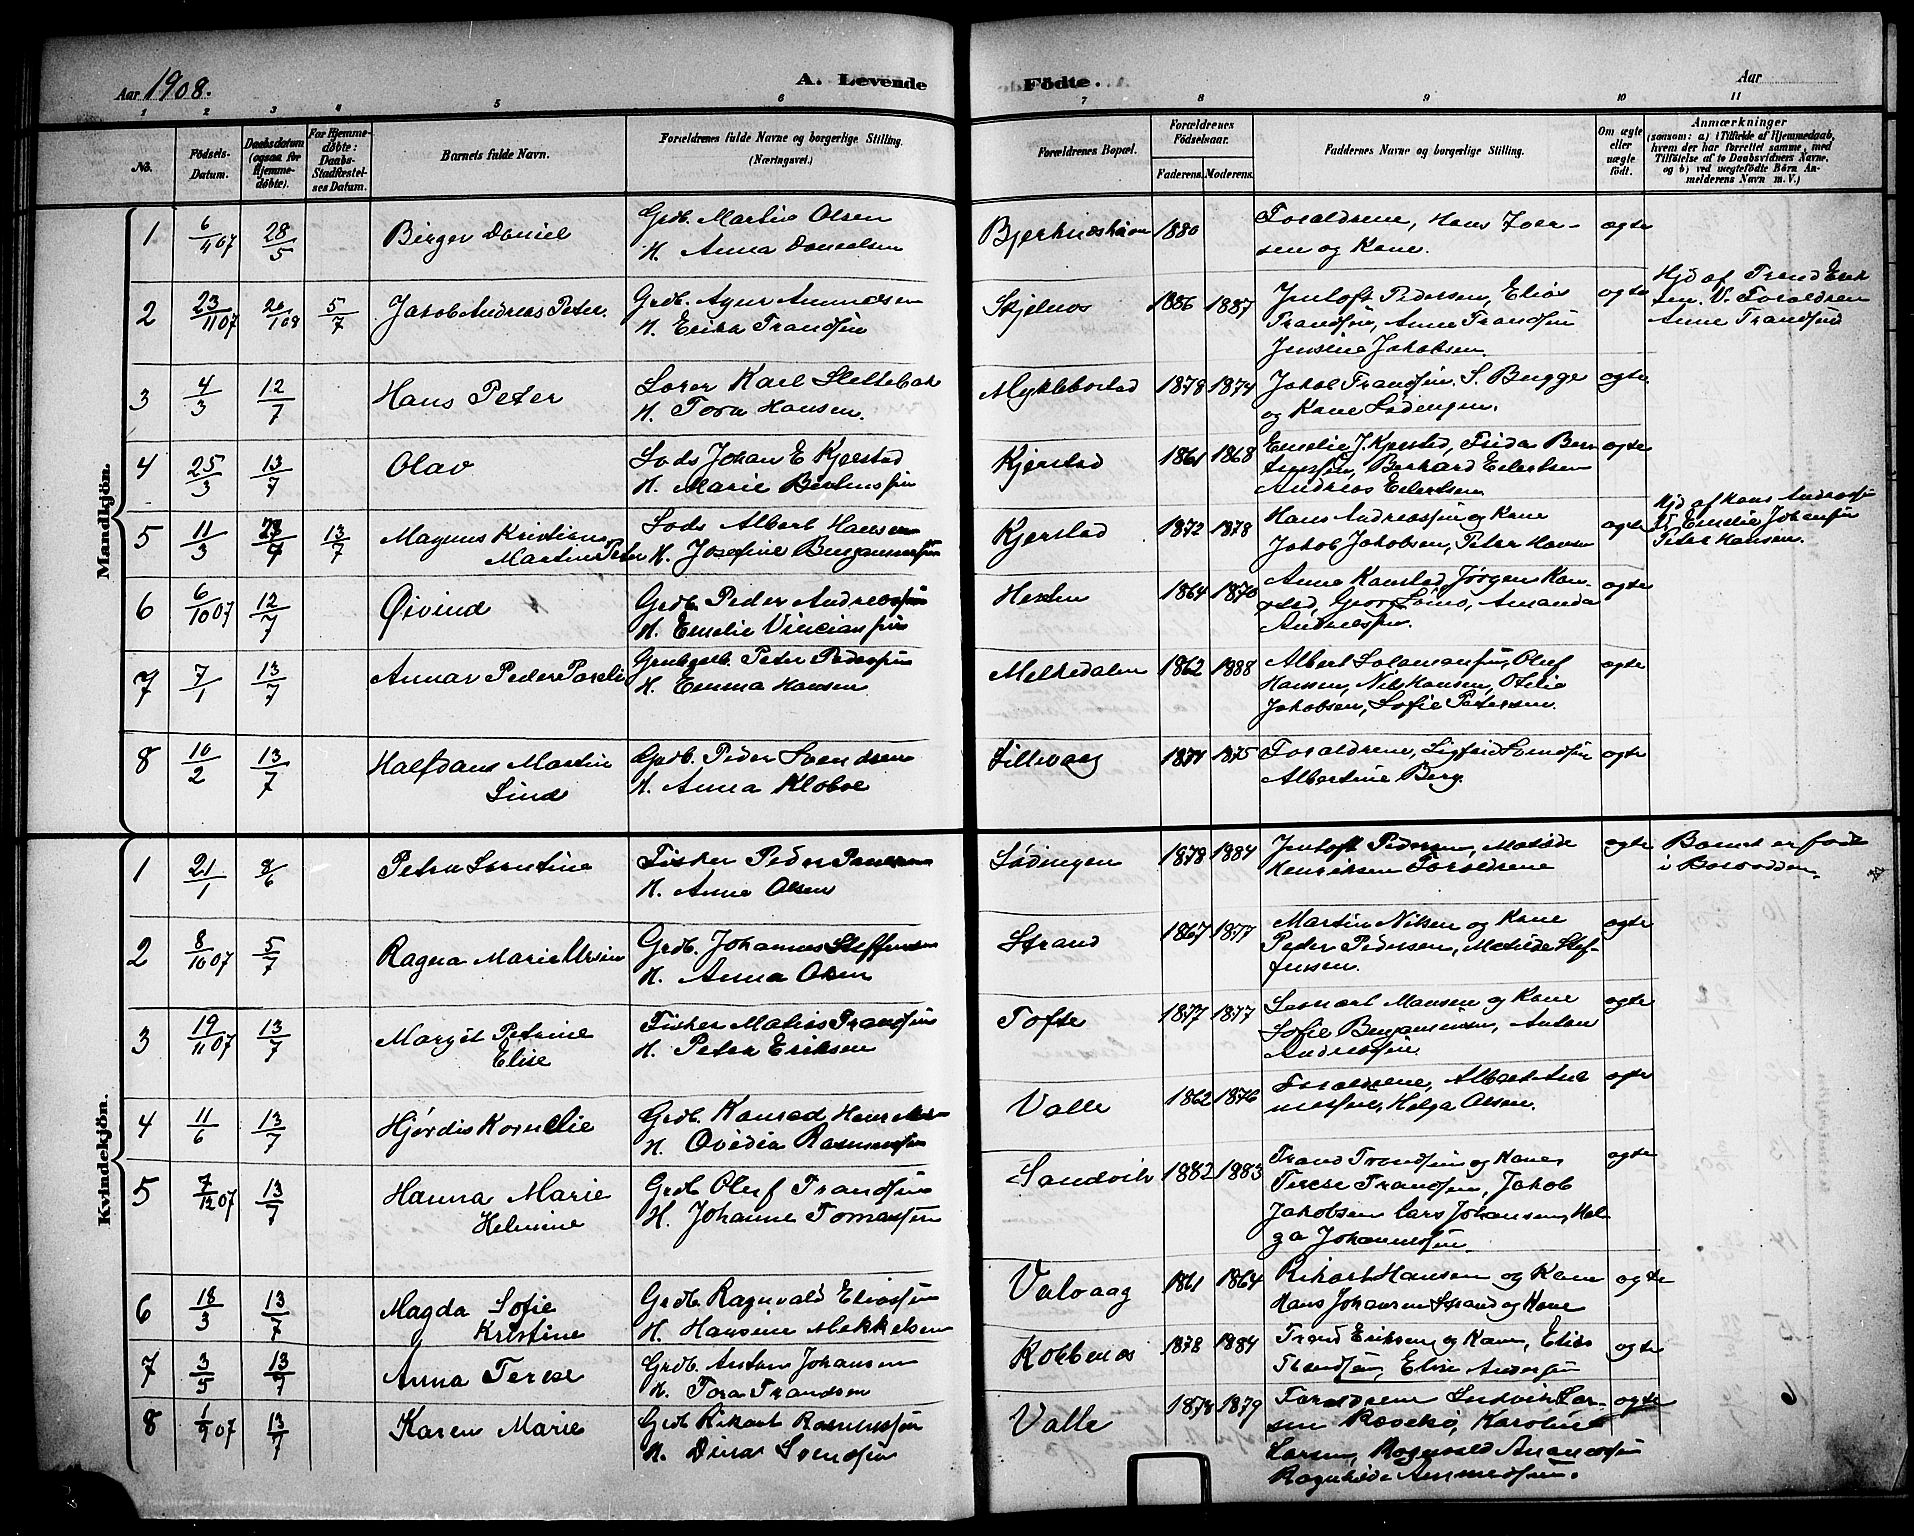 Aar 1908.
A. Levende
Födte.
Aar
1 2 3 4 5 6 7 8 9 10 11
No.
Födsels-Datum.
Daabsdatum (ogsaa for Hjemmedöbte).
For Hjemmedöbte: Daabs-Stadfæstelses Datum.
Barnets fulde Navn.
Forældrenes fulde Navne og borgerlige Stilling.
(Næringsvei.)
Forældrenes Bopæl.
Forældrenes Födselsaar.
Faderens. Moderens.
Faddernes Navne og borgerlige Stilling.
Om ægte eller uægte födt.
Anmærkninger
(saasom: a) i Tilfælde af Hjemmedaab,
hvem der har forrettet samme, med
Tilföielse af to Daabsvidners Navne,
og b) ved uægtefödte Börn Anmelderens Navn m. V.)
Mandkjön.
1 6/11 07 28/5 Birger Daniel
Grdb. Martin Olsen
H. Anna Danielsen
1880
Forældrene, Hans Iver-
sen og Kone.
ægte
2 23/11 07 26/1 08 5/7 Jakob Andreas Peter.
Grdb. Agnr
H. Erika Trandsen
Skjelnes 1886 1887
Jentoft Pedersen, Elias
Trandsen, Anne Trandsen
Jensine Jakobsen.
ægte
Hjd af Trond Erik
sen. V. Forældren
Anne Trandsen
3 4/3 12/7 Hans Peter
Karl Slettebak
H. Tora Hansen.
Myklebostad 1878 1874
Jakob Trandsen. S. Bugge
og Kone Lødingen.
ægte
4 25/3 13/7 Olav
Lods Johan E Kjerstad
H. Marie
Kjerstad 1861 1868
Emelie J. Kjerstad, Frida
Berhard Eilertsen
Andreas Eilertsen
ægte
5 11/3 13/7 Magnus Kristian
Martin Peter
Lods Albert Hansen
H. Josefine Benjaminsen
Kjerstad 1872 1878
Hans Andreassen og Kone
Jakob Jakobsen, Peter Hansen
ægte
Hjd af Hans Andreassen
V. Emelie Johansen
Peter Hansen.
6 6/10 07 12/7 Øivind
Grdb. Peder Andreassen
H. Emelie
1864 1870
Anna Kanstad, Jørgen Kan-
stad, Georg Amanda
Andreassen.
ægte
7 7/1 13/7 Annar Peder
Peter Pedersen
H. Emma Hansen
Melkedalen 1862 1888
Albert Salamonsen, Oluf
Hansen, Nils Hansen, Otelie
Jakobsen, Sofie Petersen.
ægte
8 10/2 13/7 Halfdans Martin
Lind
Grdb. Peder Svendsen
H. Anna Klobve
Lillevaag 1874 1875
Forældrene, Sigfrid Svendsen
Albertine Berg.
ægte
Kvindekjön.
1 21/1 8/6 Petra Sørentine
Fisker Peder
H. Anne Olsen
Lødingen 1878 1884
Jentoft Pedersen, Matilde
Henriksen Forældrene
ægte
Barnet er født
i
2 8/10 07 5/7 Ragna Marie Ursin
Grdb. Johannes Steffensen
H. Anna Olsen
Strand 1867 1877
Martin Nilsen og Kone
Peder Pedersen, Matilde Stef-
fensen.
ægte
3 19/11 07 13/7 Margit Petrine
Elise
Fisker Matias Trandsen
H. Petra Eriksen
Tofte 1877 1877
Hansen og Kone
Sofie Benjaminsen, Anton
Andreassen.
ægte
4 11/6 13/7 Hjørdis Kornelie
Grdb. Konrad Henriksen
H. Ovedia Rasmussen
Valle 1862 1876
Forældrene, Albert
Helga Olsen.
ægte
5 7/12 07 13/7 Hanna Marie
Helmine
Grdb Oluf Trandsen
H. Johanne Tomassen
Sandvik 1882 1883
Trand Trandsen og Kone,
Terese Trandsen, Jakob
Jakobsen Lars Johansen, Hel
ga Johannessen.
ægte
6 18/3 13/7 Magda Sofie
Kristine
Grdb Ragnvald Eliassen
H. Hansine Mekkelsen
Valvaag 1861 1864
Rikart Hansen og Kone
Hans Johansen Strand og Kone
ægte
7 3/5 13/7 Anna Terese
Grdb. Anton Johansen
H. Tora Trandsen
Kobbenes 1878 1884
Trond Eriksen og Kone, Elias
Trandsen, Elise Andersen
ægte
8 1/9 07 13/7 Karen Marie
Grdb Rikart Rasmussen
H. Dina Svendsen
Valle 1874 1879
Forældrene Ludvik Lar-
sen Karoline
Larsen, Ragnvald
Ragnhilde
ægte